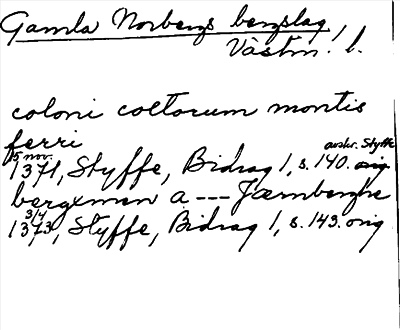 Gamla Norbergs bergslag
Västm. l.
coloni coetorum montis
ferri
15 nov. avskr. Styffe
1371, Styffe, Bidrag 1, s. 140. orig
bergxmen a --- Jærnberghe
3/4
1373, Styffe, Bidrag 1, s. 143. orig